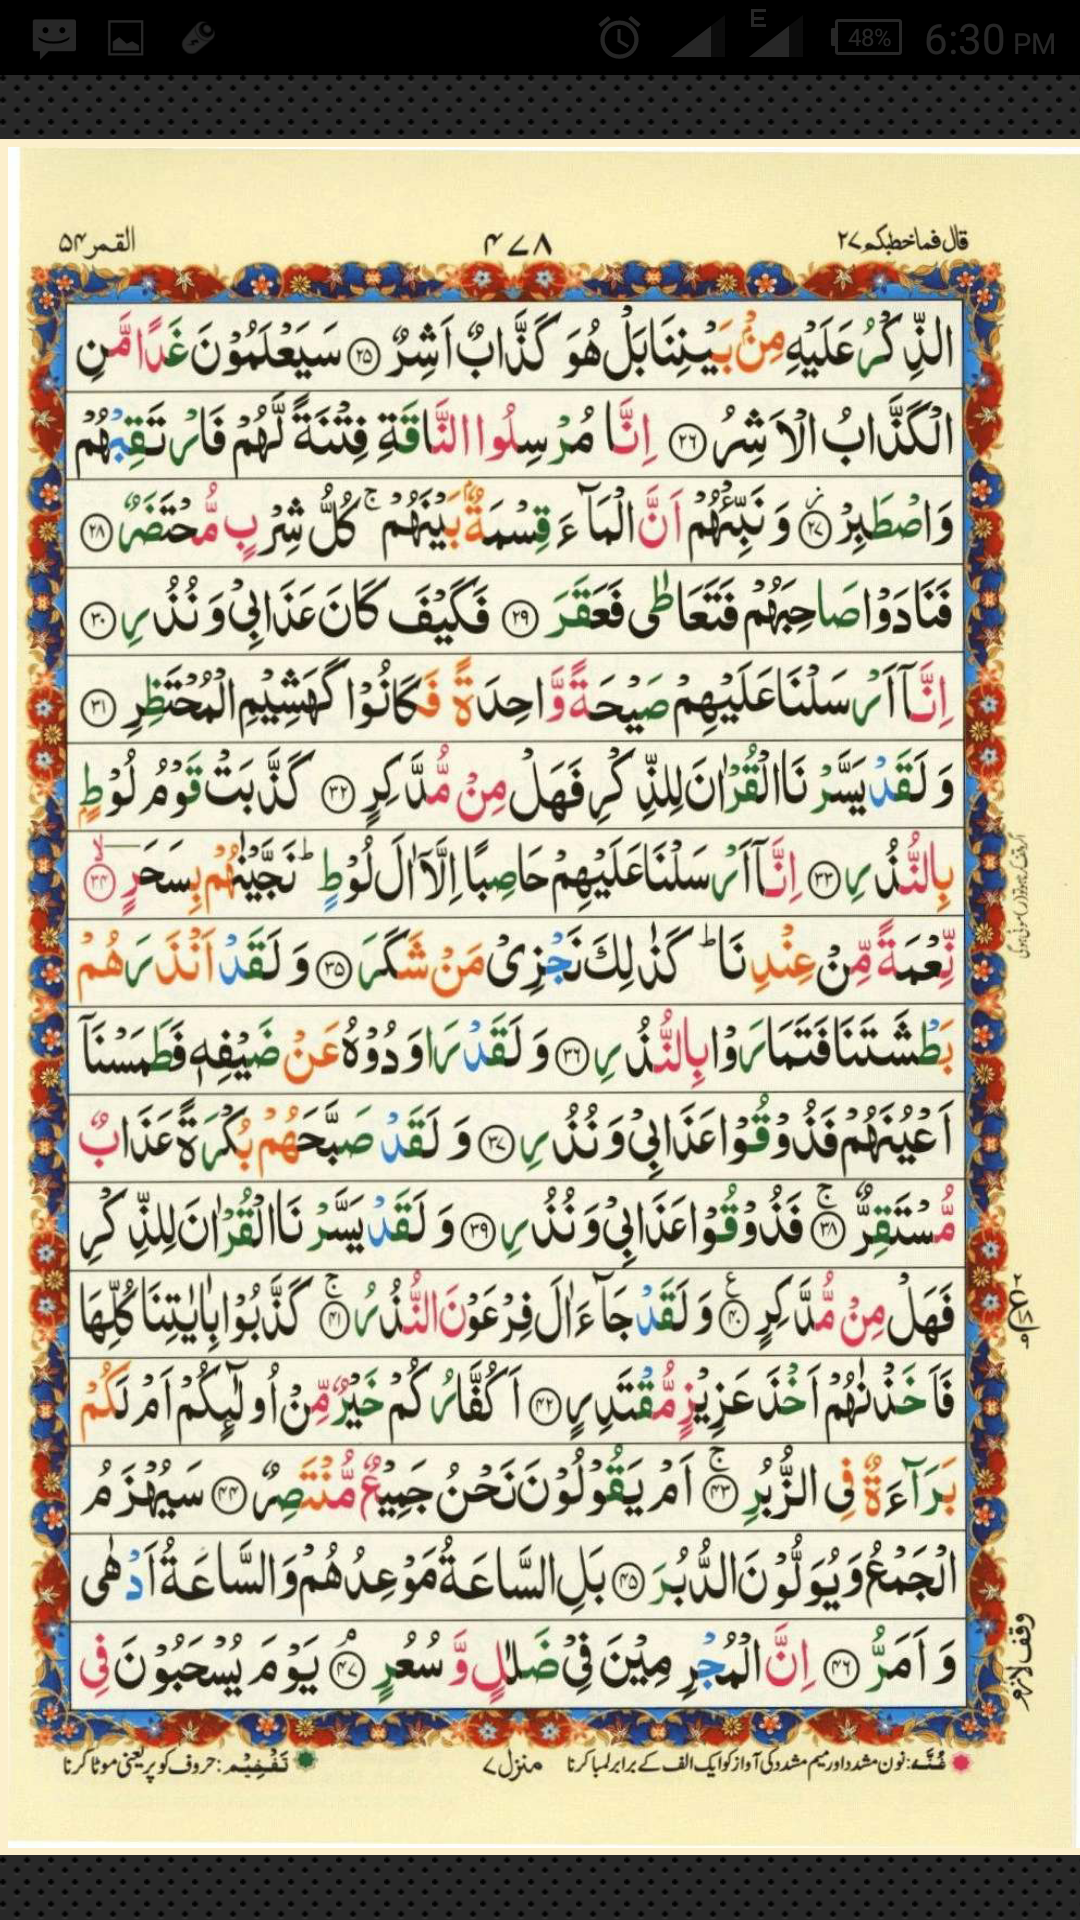 E 48% 6:30 PM
قال فما خطبکم ۲۷ ۴۷۸ القمر ۵۴
الذِّكْرُ عَلَيْهِ مِنْۢ بَيْنِنَا بَلْ هُوَ كَذَّابٌ اَشِرٌ ۲۵ سَيَعْلَمُوْنَ غَدًا مَّنِ
الْكَذَّابُ الْاَشِرُ ۲۶ اِنَّا مُرْسِلُوا النَّاقَةِ فِتْنَةً لَّهُمْ فَارْتَقِبْهُمْ
وَاصْطَبِرْ ۲۷ ز وَنَبِّئْهُمْ اَنَّ الْمَآءَ قِسْمَةٌۢ بَيْنَهُمْ ۚ كُلُّ شِرْبٍ مُّحْتَضَرٌ ۲۸
فَنَادَوْا صَاحِبَهُمْ فَتَعَاطٰى فَعَقَرَ ۲۹ فَكَيْفَ كَانَ عَذَابِيْ وَنُذُرِ ۳۰
اِنَّآ اَرْسَلْنَا عَلَيْهِمْ صَيْحَةً وَّاحِدَةً فَكَانُوْا كَهَشِيْمِ الْمُحْتَظِرِ ۳۱
وَلَقَدْ يَسَّرْنَا الْقُرْاٰنَ لِلذِّكْرِ فَهَلْ مِنْ مُّدَّكِرٍ ۳۲ كَذَّبَتْ قَوْمُ لُوْطٍۭ
بِالنُّذُرِ ۳۳ اِنَّآ اَرْسَلْنَا عَلَيْهِمْ حَاصِبًا اِلَّآ اٰلَ لُوْطٍ ؕ نَجَّيْنٰهُمْ بِسَحَرٍ ۳۴ ۙ
نِّعْمَةً مِّنْ عِنْدِنَا ؕ كَذٰلِكَ نَجْزِيْ مَنْ شَكَرَ ۳۵ وَلَقَدْ اَنْذَرَهُمْ
بَطْشَتَنَا فَتَمَارَوْا بِالنُّذُرِ ۳۶ وَلَقَدْ رَاوَدُوْهُ عَنْ ضَيْفِهٖ فَطَمَسْنَآ
اَعْيُنَهُمْ فَذُوْقُوْا عَذَابِيْ وَنُذُرِ ۳۷ وَلَقَدْ صَبَّحَهُمْ بُكْرَةً عَذَابٌ
مُّسْتَقِرٌّ ۳۸ ۚ فَذُوْقُوْا عَذَابِيْ وَنُذُرِ ۳۹ وَلَقَدْ يَسَّرْنَا الْقُرْاٰنَ لِلذِّكْرِ
فَهَلْ مِنْ مُّدَّكِرٍ ۴۰ ع وَلَقَدْ جَآءَ اٰلَ فِرْعَوْنَ النُّذُرُ ۴۱ ۚ كَذَّبُوْا بِاٰيٰتِنَا كُلِّهَا
فَاَخَذْنٰهُمْ اَخْذَ عَزِيْزٍ مُّقْتَدِرٍ ۴۲ اَكُفَّارُكُمْ خَيْرٌ مِّنْ اُولٰٓئِكُمْ اَمْ لَكُمْ
بَرَآءَةٌ فِي الزُّبُرِ ۴۳ ۚ اَمْ يَقُوْلُوْنَ نَحْنُ جَمِيْعٌ مُّنْتَصِرٌ ۴۴ سَيُهْزَمُ
الْجَمْعُ وَيُوَلُّوْنَ الدُّبُرَ ۴۵ بَلِ السَّاعَةُ مَوْعِدُهُمْ وَالسَّاعَةُ اَدْهٰى
وَاَمَرُّ ۴۶ اِنَّ الْمُجْرِمِيْنَ فِيْ ضَلٰلٍ وَّسُعُرٍ ۴۷ ۘ يَوْمَ يُسْحَبُوْنَ فِي
وقف لازم
غُنَّه: نون مشدد اور میم مشدد کی آواز کو ایک الف کے برابر لمبا کرنا منزل ۷ تَفْخِيْم: حروف کو پُر یعنی موٹا کرنا